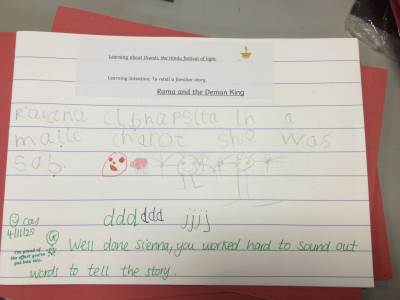 Learning about Diwali, the Hindu festival of light.
Learning Intention: To retell a familiar story.
Rama and the Demon King
in a
she was
ddd ddd jjjj
4/11/25
I'm proud of
the effort you've
put into this.
Well done Sienna, you worked hard to sound out
words to tell the story.